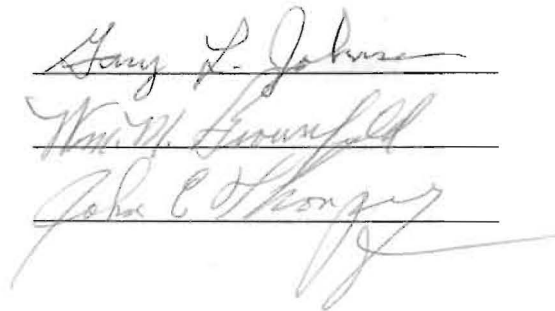 Gary L. Johnson
Wm. N. Brownfield
John E Thompson